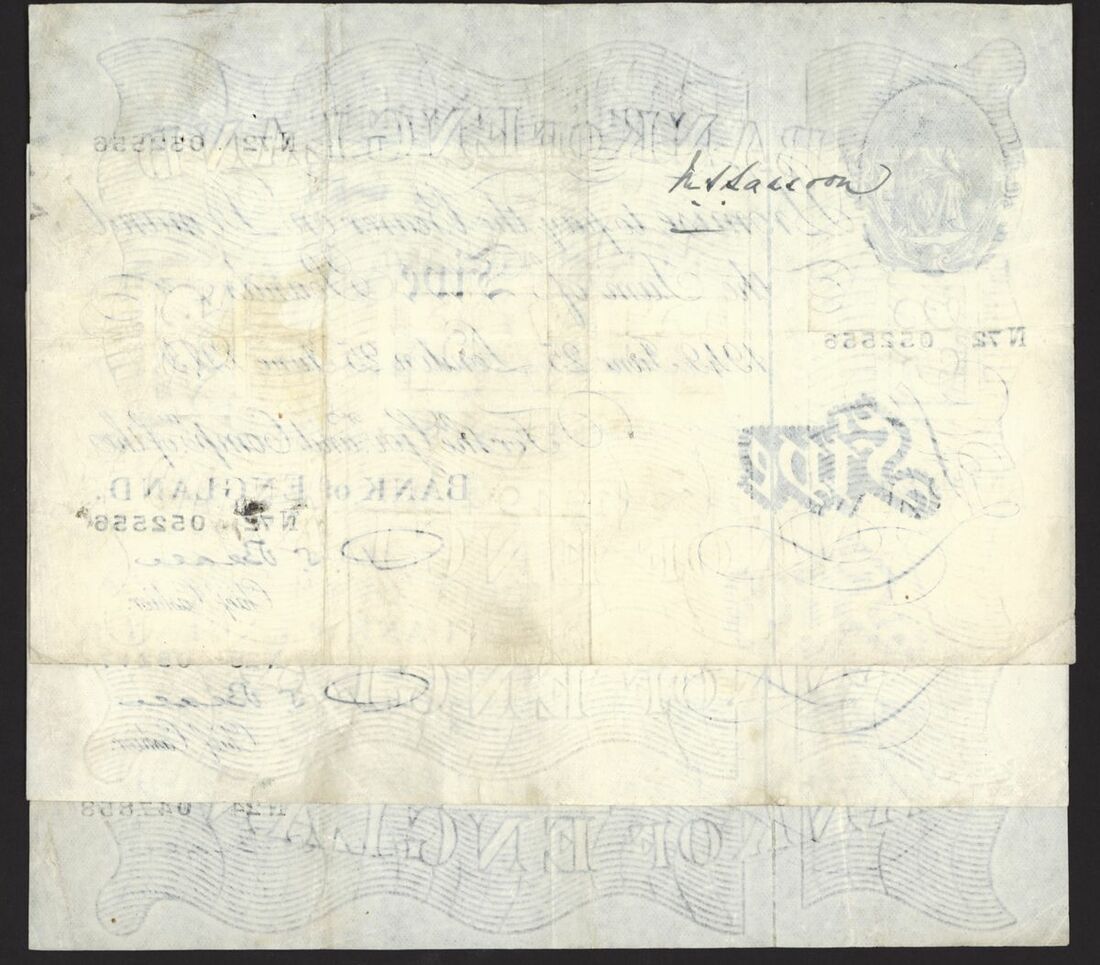 BANK OF ENGLAND
N72 052556
Promise to pay the Bearer on Demand
the Sum of Five Pounds
N72 052556
1949 Jan 25 London 25 Jan 1949
For the Govr. and Compa. of the
Five
BANK of ENGLAND.
N72 052556
P S Beale
Chief Cashier.
P S Beale
Chief Cashier
N24 047858
BANK OF ENGLAND